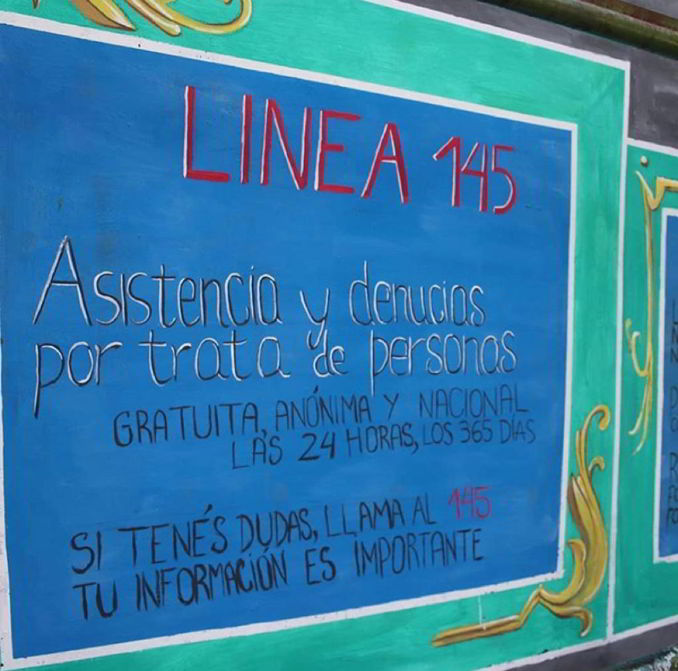 LINEA 145
Asistencia y denucias
por trata de personas
GRATUITA, ANÓNIMA Y NACIONAL
LAS 24 HORAS, LOS 365 DÍAS
SI TENÉS DUDAS, LLAMA AL 145
TU INFORMACIÓN ES IMPORTANTE